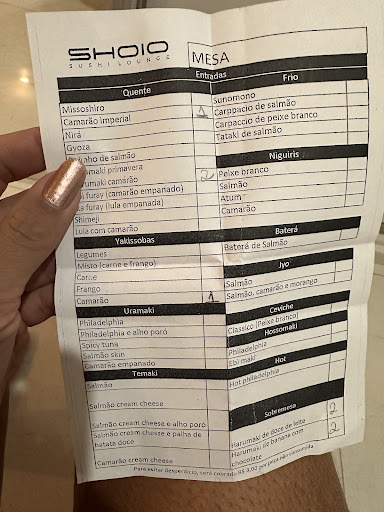 SHOIO
SUSHI LOUNGE
MESA
Entradas
Quente
Missoshiro
Camarão imperial 1
Nirá
Gyoza
de salmão
primavera
camarão 2
furay (camarão empanado)
furay (lula empanada)
Shimeji
Lula com camarão
Yakissobas
Legumes
Misto (carne e frango)
Carne
Frango
Camarão 1
Uramaki
Philadelphia
Philadelphia e alho poró
Spicy tuna
Salmão skin
Camarão empanado
Temaki
Salmão
Salmão cream cheese
Salmão cream cheese e alho poró
Salmão cream cheese e palha de
batata doce
Camarão cream cheese
Frio
Sunomono
Carppacio de salmão
Carpaccio de peixe branco
Tataki de salmão
Niguiris
Peixe branco
Salmão
Atum
Camarão
Baterá
Baterá de Salmão
Jyo
Salmão
Salmão, camarão e morango
Ceviche
Classico (Peixe branco)
Hossomaki
Philadelphia
Ebi maki
Hot
Hot philadelphia
Sobremesa
Harumaki de doce de leite 2
Harumaki de banana com
chocolate 2
Para evitar desperdício, será cobrado R$ 3,00 por peça não consumida